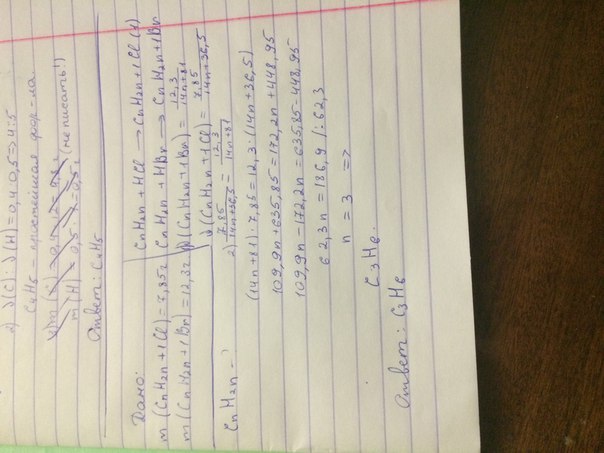 2) ν(C) : ν(H) = 0,4 0,5 => 4:5
C4H5 – простейшая фор-ла.
m(H) = 0,5 (не писать!)
Ответ: C4H5
Дано:
m (CnH2n+1Cl) = 7,85г
m (CnH2n+1Br) = 12,3г
CnH2n - ?
CnH2n + HCl → CnH2n+1Cl (1)
CnH2n + HBr → CnH2n+1Br
ν (CnH2n+1Br) = 12,3/14n+81
ν (CnH2n+1Cl) = 7,85/14n+36,5
2) 7,85/14n+36,5 = 12,3/14n+81
(14n+81)·7,85 = 12,3·(14n+36,5)
109,9n + 635,85 = 172,2n + 448,95
109,9n - 172,2n = 635,85 - 448,95
62,3n = 186,9 /:62,3
n = 3 =>
C3H6.
Ответ: C3H6